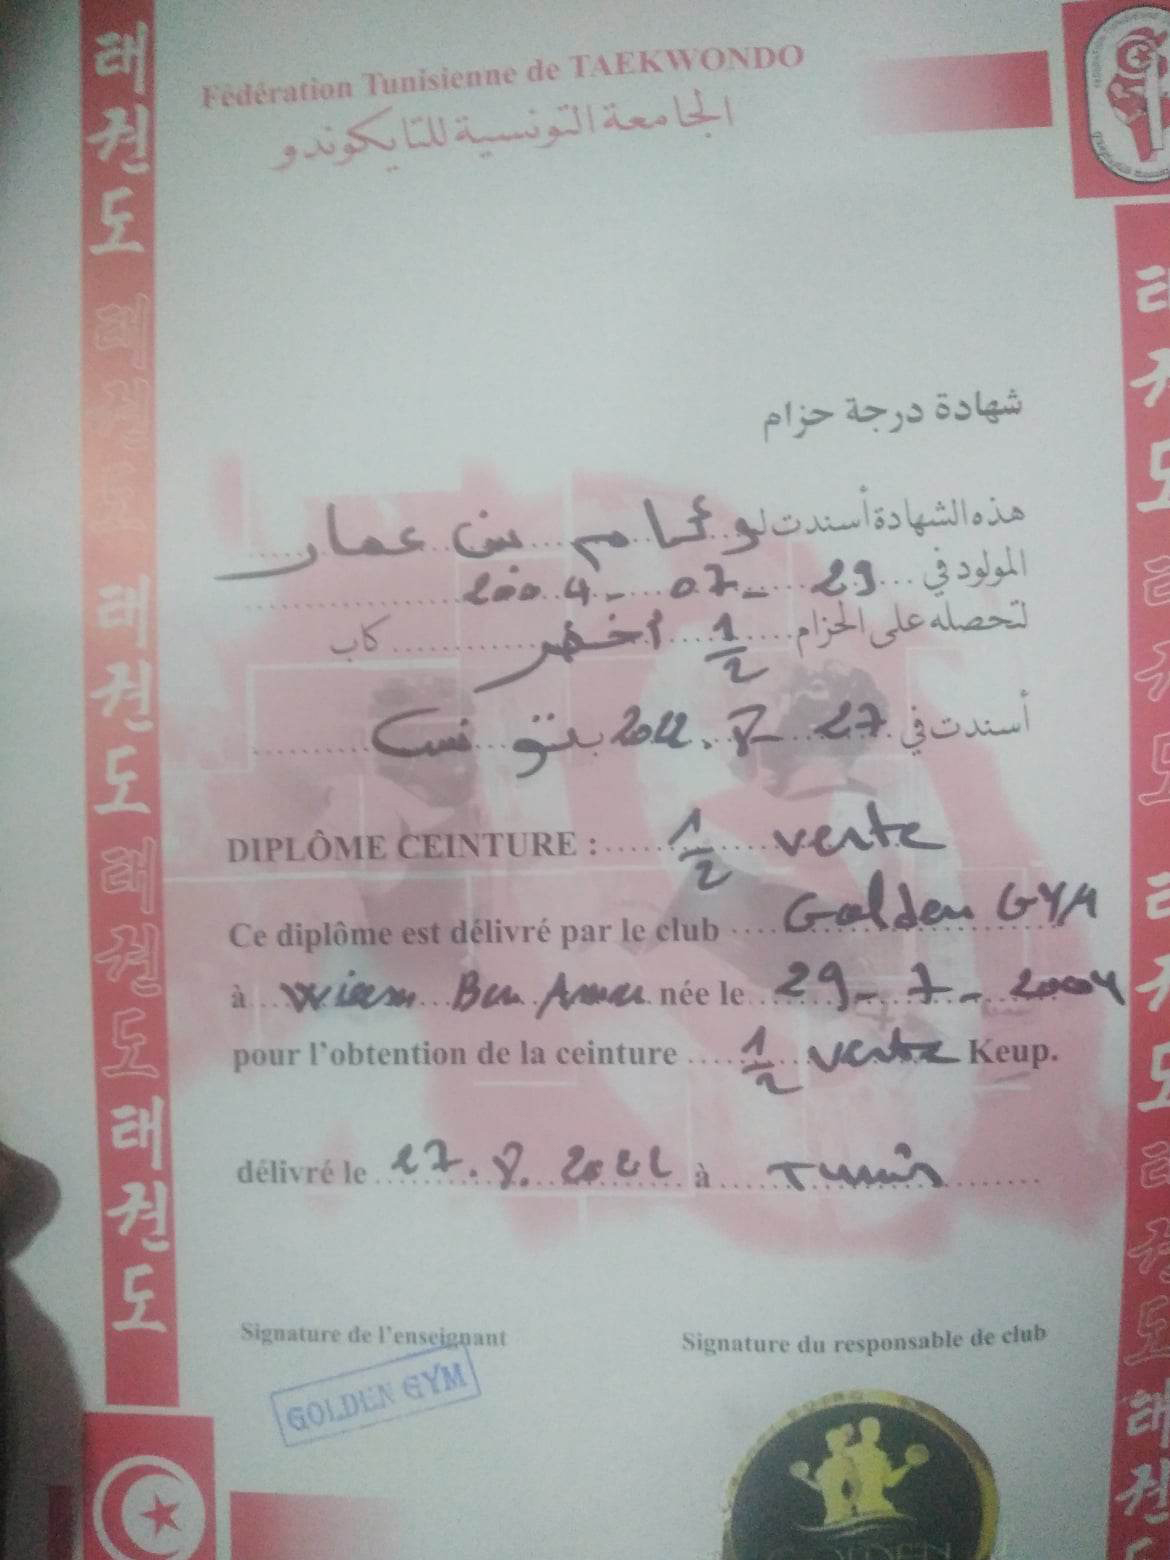 Fédération Tunisienne de TAEKWONDO
الجامعة التونسية للتايكوندو
شهادة درجة حزام
هذه الشهادة أسندت لـ وئام بن عمار
المولود في 29 - 07 - 2004
لتحصله على الحزام 1/2 أخضر كاب
أسندت في 27 . 8 . 2022 بتونس
DIPLÔME CEINTURE : 1/2 verte
Ce diplôme est délivré par le club Golden GYM
à Wiem Ben Amar née le 29 - 7 - 2004
pour l'obtention de la ceinture 1/2 verte Keup.
délivré le 27 . 8 . 2022 à Tunis
Signature de l'enseignant
Signature du responsable de club
GOLDEN GYM
GOLDEN
태권도 태권도 태권도 태권도 태권도
태권도 태권도 태권도 태권도 태권